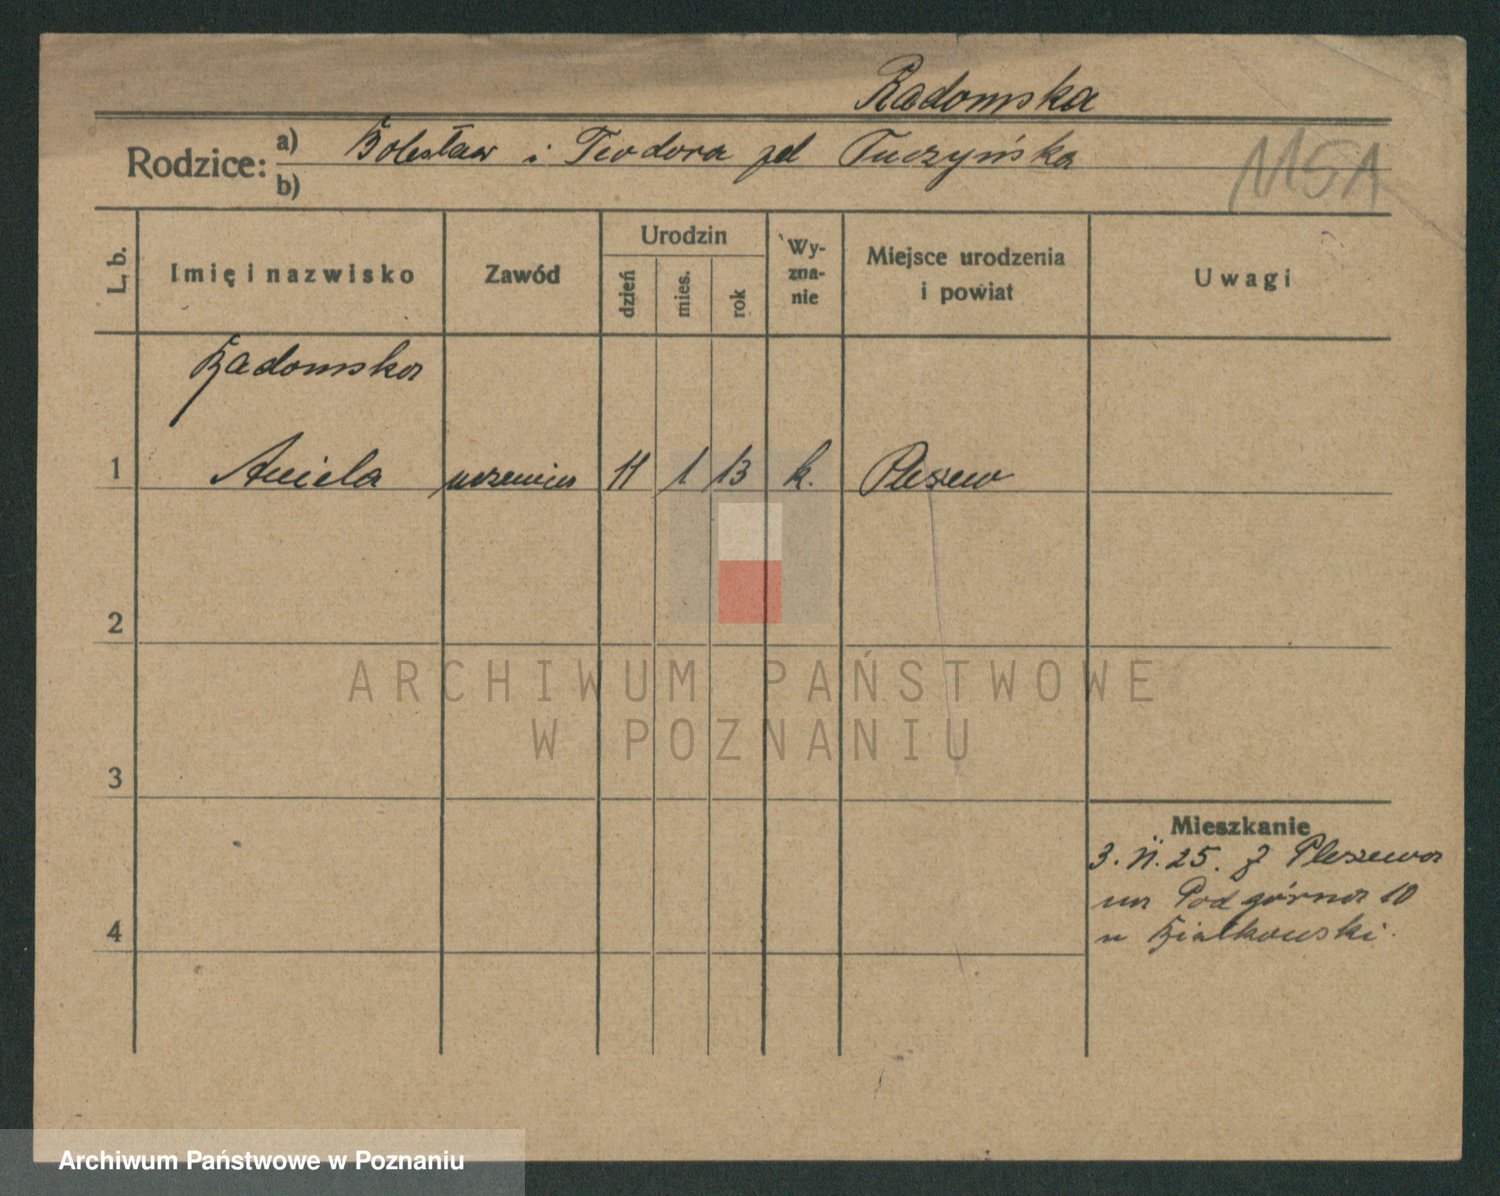 Radomska
Rodzice: a) Bolesław i Teodora zd Tuczyńska
b)
M5A
L. b. Imię i nazwisko Zawód Urodzin dzień mies. rok Wyzna-nie Miejsce urodzenia i powiat Uwagi
Radomska
1 Aniela uczenica 11 1 13 k. Pleszew
2
3
4
Mieszkanie
3. II. 25. z Pleszewa
na Podgórna 10
u Białkowski.
ARCHIWUM PAŃSTWOWE
W POZNANIU
Archiwum Państwowe w Poznaniu